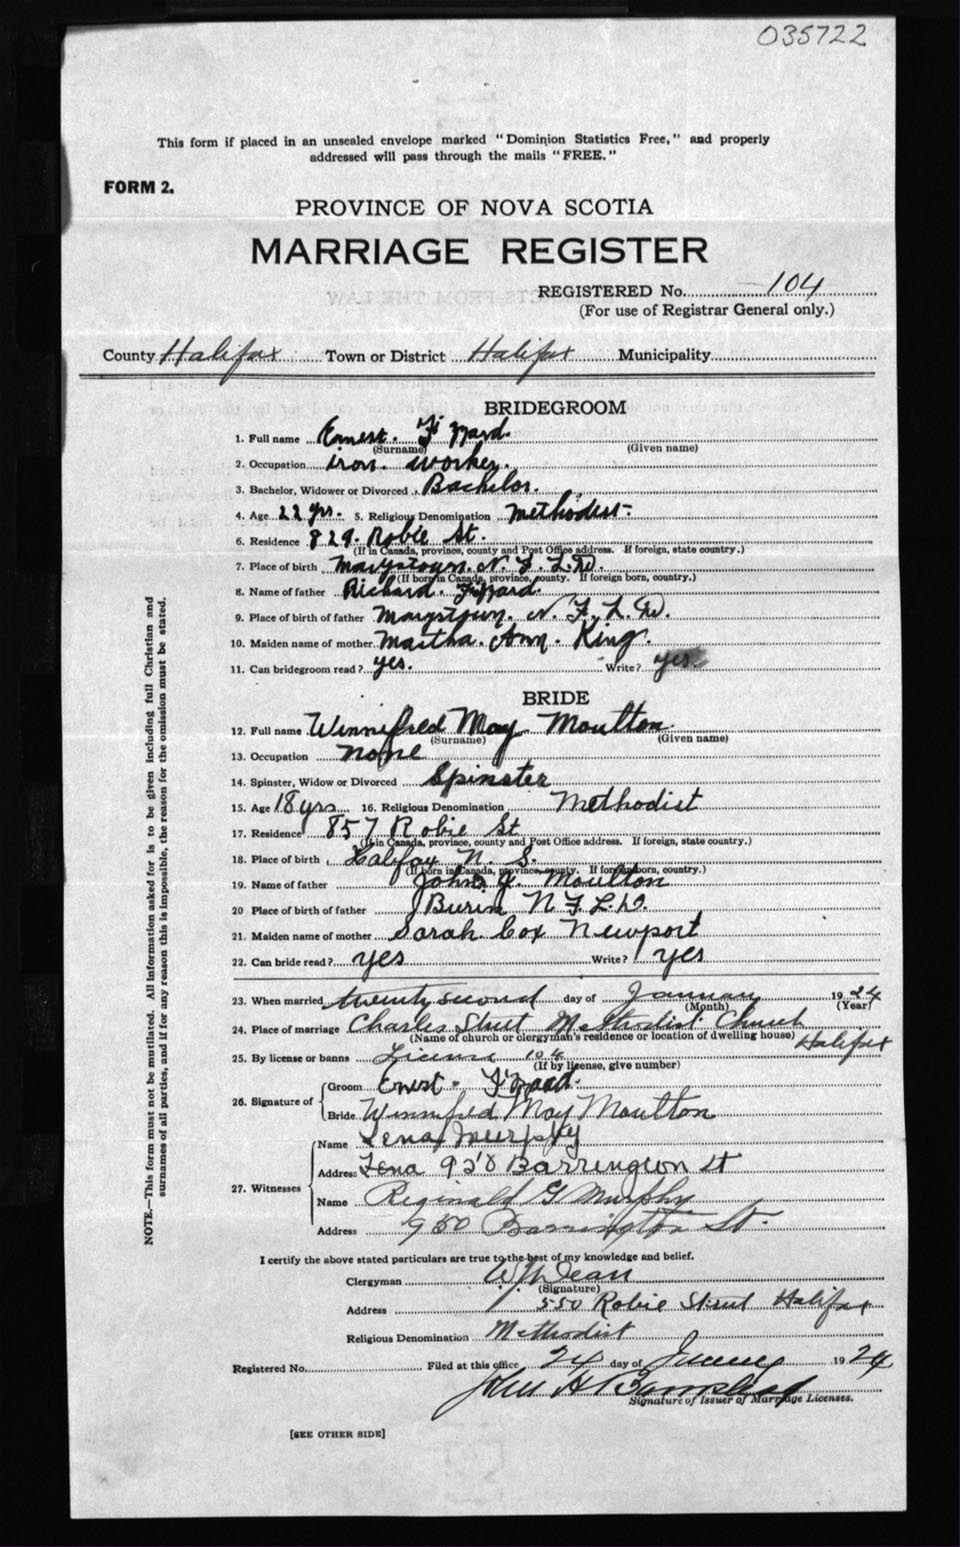 035722
This form if placed in an unsealed envelope marked "Dominion Statistics Free," and properly
addressed will pass through the mails "FREE."
FORM 2.
PROVINCE OF NOVA SCOTIA
MARRIAGE REGISTER
REGISTERED No. 104
(For use of Registrar General only.)
County Halifax Town or District Halifax Municipality
BRIDEGROOM
1. Full name Ernest. Fizzard.
(Surname) (Given name)
2. Occupation iron. worker.
3. Bachelor, Widower or Divorced Bachelor.
4. Age 22 yrs. 5. Religious Denomination Methodist-
6. Residence 829. Robie St.
(If in Canada, province, county and Post Office address. If foreign, state country.)
7. Place of birth Marystown. N. F. L. D.
(If born in Canada, province, county. If foreign born, country.)
8. Name of father Richard. Fizzard.
9. Place of birth of father Marystown. N. F. L. D.
10. Maiden name of mother Martha. Ann. King.
11. Can bridegroom read? yes. Write? yes.
BRIDE
12. Full name Winnifred May Moulton
(Surname) (Given name)
13. Occupation none
14. Spinster, Widow or Divorced Spinster
15. Age 18 yrs 16. Religious Denomination Methodist
17. Residence 857 Robie St
(If in Canada, province, county and Post Office address. If foreign, state country.)
18. Place of birth Halifax N. S.
(If born in Canada, province, county. If foreign born, country.)
19. Name of father John Moulton
20 Place of birth of father Burin N F L D.
21. Maiden name of mother Sarah Cox Newport
22. Can bride read? yes Write? yes
23. When married twenty second day of January 1924
(Month) (Year)
24. Place of marriage Charles Street Methodist Church
(Name of church or clergyman's residence or location of dwelling house) Halifax
25. By license or banns License 104
(If by license, give number)
26. Signature of Groom Ernest. Fizzard.
Bride Winnifred May Moulton
27. Witnesses Name Lena Murphy
Address Lena 930 Barrington St
Name Reginald G Murphy
Address 930 Barrington St.
I certify the above stated particulars are true to the best of my knowledge and belief.
Clergyman Dean
(Signature)
Address 550 Robie Street Halifax
Religious Denomination Methodist
Registered No. Filed at this office 24 day of 1924
John H Barnstead
Signature of Issuer of Marriage Licenses.
[SEE OTHER SIDE]
NOTE.—This form must not be mutilated. All information asked for is to be given including full Christian and
surnames of all parties, and if for any reason this is impossible, the reason for the omission must be stated.